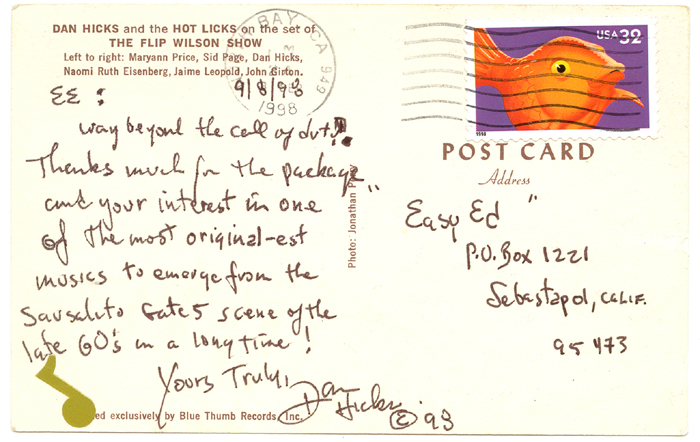 DAN HICKS and the HOT LICKS on the set of
THE FLIP WILSON SHOW
Left to right: Maryann Price, Sid Page, Dan Hicks,
Naomi Ruth Eisenberg, Jaime Leopold, John Girton.
BAY, CA 949
1998
9/8/98
EE:
way beyond the call of duty!
Thanks much for the package
and your interest in one
of the most original-est
musics to emerge from the
Sausalito Gate 5 scene of the
late 60's in a long time!
Yours Truly,
Dan Hicks
© 98
ed exclusively by Blue Thumb Records, Inc.
Photo: Jonathan
USA 32
1998
POST CARD
Address
"Easy Ed"
P.O. Box 1221
Sebastapol, CALIF.
95473